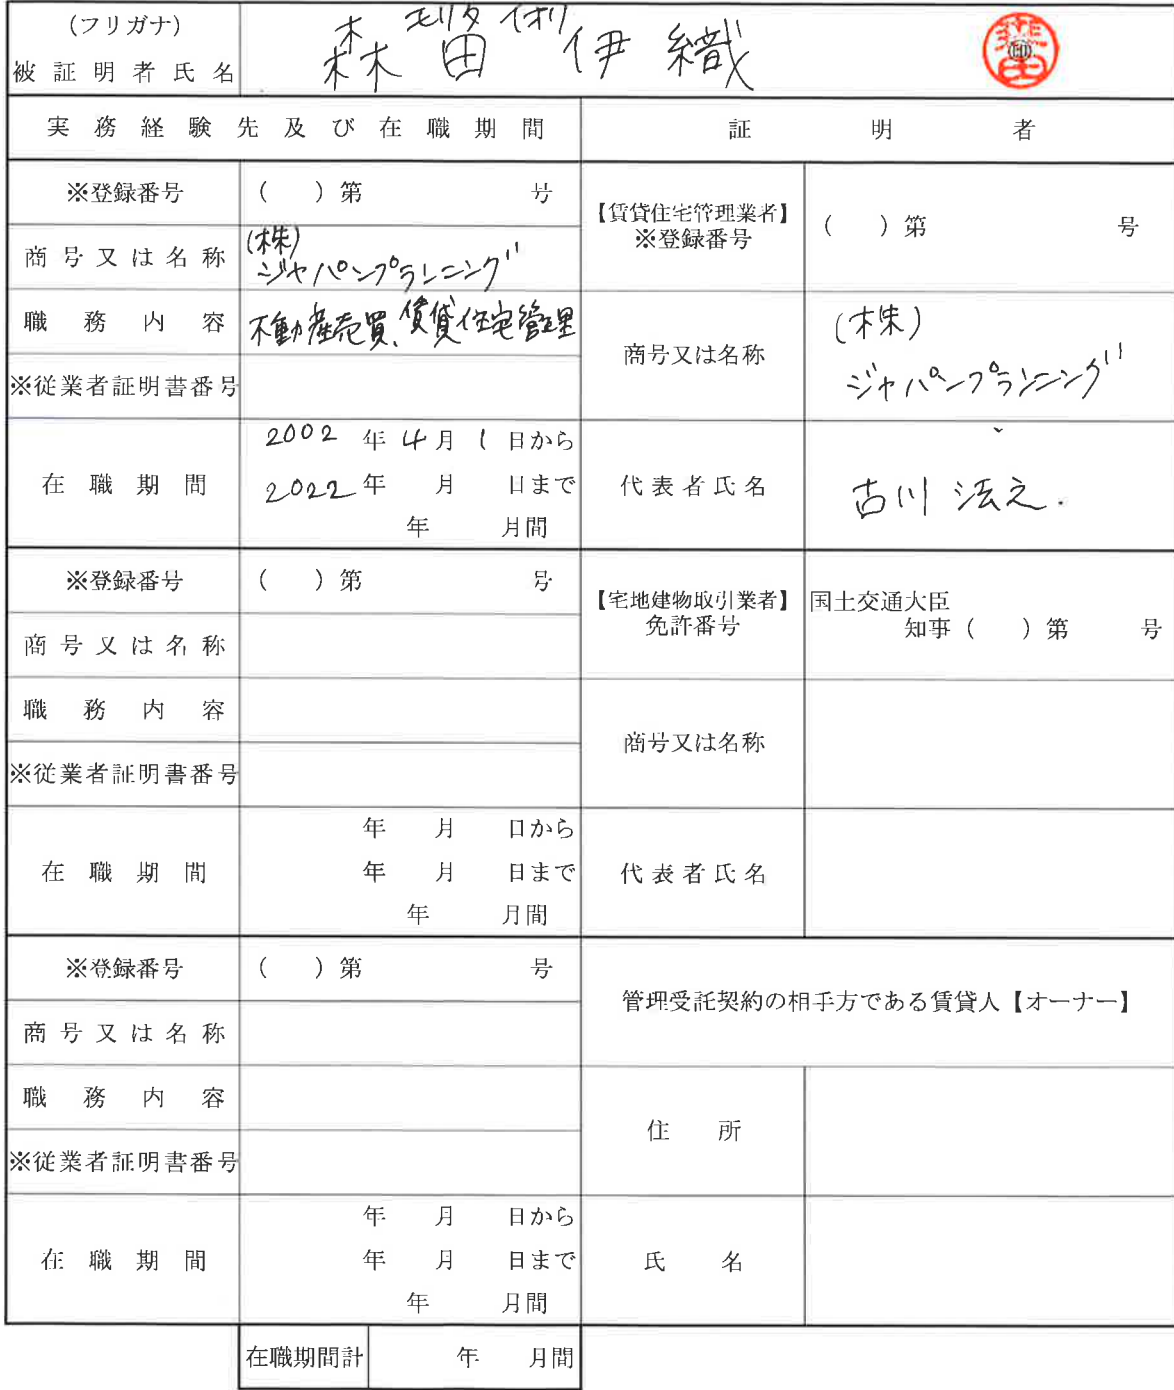 (フリガナ) モリタ イオリ
被証明者氏名 森畄 伊織 ㊞
実務経験先及び在職期間 証明者
※登録番号 ( )第 号
【賃貸住宅管理業者】
※登録番号 ( )第 号
商号又は名称 (株)
ジャパンプランニング
職務内容 不動産売買、賃貸住宅管理
商号又は名称 (株)
ジャパンプランニング
※従業者証明書番号
在職期間 2002年4月1日から
2022年 月 日まで
年 月間
代表者氏名 古川 法之.
※登録番号 ( )第 号
【宅地建物取引業者】
免許番号
国土交通大臣
知事( )第 号
商号又は名称
職務内容
商号又は名称
※従業者証明書番号
在職期間 年 月 日から
年 月 日まで
年 月間
代表者氏名
※登録番号 ( )第 号
管理受託契約の相手方である賃貸人【オーナー】
商号又は名称
職務内容
住所
※従業者証明書番号
在職期間 年 月 日から
年 月 日まで
年 月間
氏名
在職期間計 年 月間